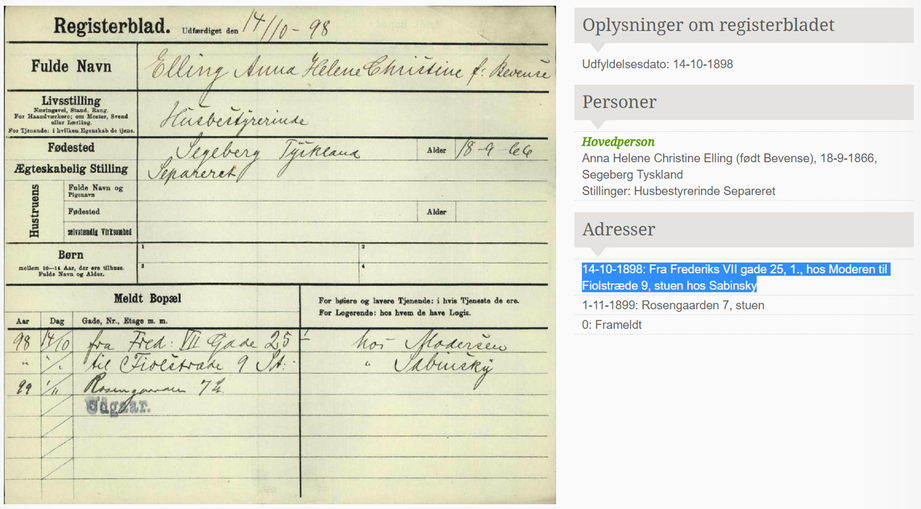 Registerblad. Udfærdiget den 14/10-98
Fulde Navn Elling Anna Helene Christine f: Bevense
Livsstilling
Næringsvej, Stand, Rang.
For Haandværkere; om Mester, Svend
eller Lærling.
For Tjenende: i hvilken Egenskab de tjene.
Husbestyrerinde
Fødested Segeberg Tyskland Alder 18-9-66
Ægteskabelig Stilling Separeret
Hustruens
Fulde Navn og
Pigenavn
Fødested Alder
selvstændig Virksomhed
Børn
mellem 10—14 Aar, der ere tilhuse.
Fulde Navn og Alder.
1 2
3 4
Meldt Bopæl
For høiere og lavere Tjenende: i hvis Tjeneste de ere.
For Logerende: hos hvem de have Logis.
Aar Dag Gade, Nr., Etage m. m.
98 14/10 fra Fred: VII Gade 25 1 hos Moderen
" " til Fiolstræde 9 St: " Sabinsky
99 1/11 Rosengaarden 7
Udgaar.
Oplysninger om registerbladet
Udfyldelsesdato: 14-10-1898
Personer
Hovedperson
Anna Helene Christine Elling (født Bevense), 18-9-1866,
Segeberg Tyskland
Stillinger: Husbestyrerinde Separeret
Adresser
14-10-1898: Fra Frederiks VII gade 25, 1., hos Moderen til
Fiolstræde 9, stuen hos Sabinsky
1-11-1899: Rosengaarden 7, stuen
0: Frameldt